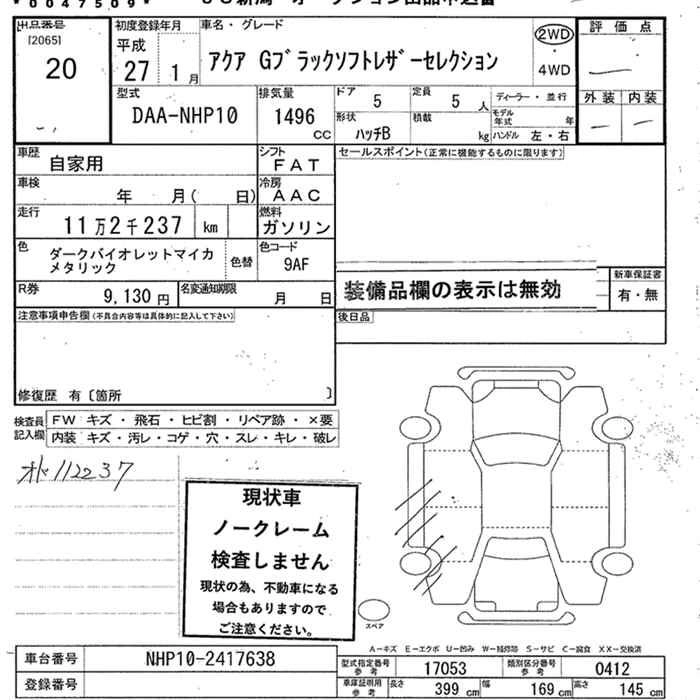 *0047509*
出品番号
[2065]
20
初度登録年月
平成
27 1月
車名・グレード
アクア Gブラックソフトレザーセレクション
2WD
4WD
評価点
外装 内装
型式
DAA-NHP10
排気量
1496 cc
ドア
5
定員
5 人
形状
ハッチB
積載
kg
ディーラー・並行
モデル年式 年
ハンドル 左・右
車歴
自家用
シフト
FAT
セールスポイント(正常に機能するものに限ります)
車検
年 月( 日)
冷房
AAC
走行
11万2千237 km
燃料
ガソリン
色
ダークバイオレットマイカ
メタリック
色替
色コード
9AF
R券
9,130円
名変通知期限
月 日
装備品欄の表示は無効
新車保証書
有・無
後日品
注意事項申告欄(不具合内容等は具体的に記入して下さい)
修復歴 有〔箇所 〕
検査員記入欄
FW キズ・飛石・ヒビ割・リペア跡・×要
内装 キズ・汚レ・コゲ・穴・スレ・キレ・破レ
112237
現状車
ノークレーム
検査しません
現状の為、不動車になる
場合もありますので
ご注意ください。
スペア
A-キズ E-エクボ U-凹み W-補修跡 S-サビ C-腐食 XX-交換済
車台番号
NHP10-2417638
登録番号
型式指定番号 参考
17053
類別区分番号 参考
0412
車庫証明用 参考
長さ 399 cm
幅 169 cm
高さ 145 cm